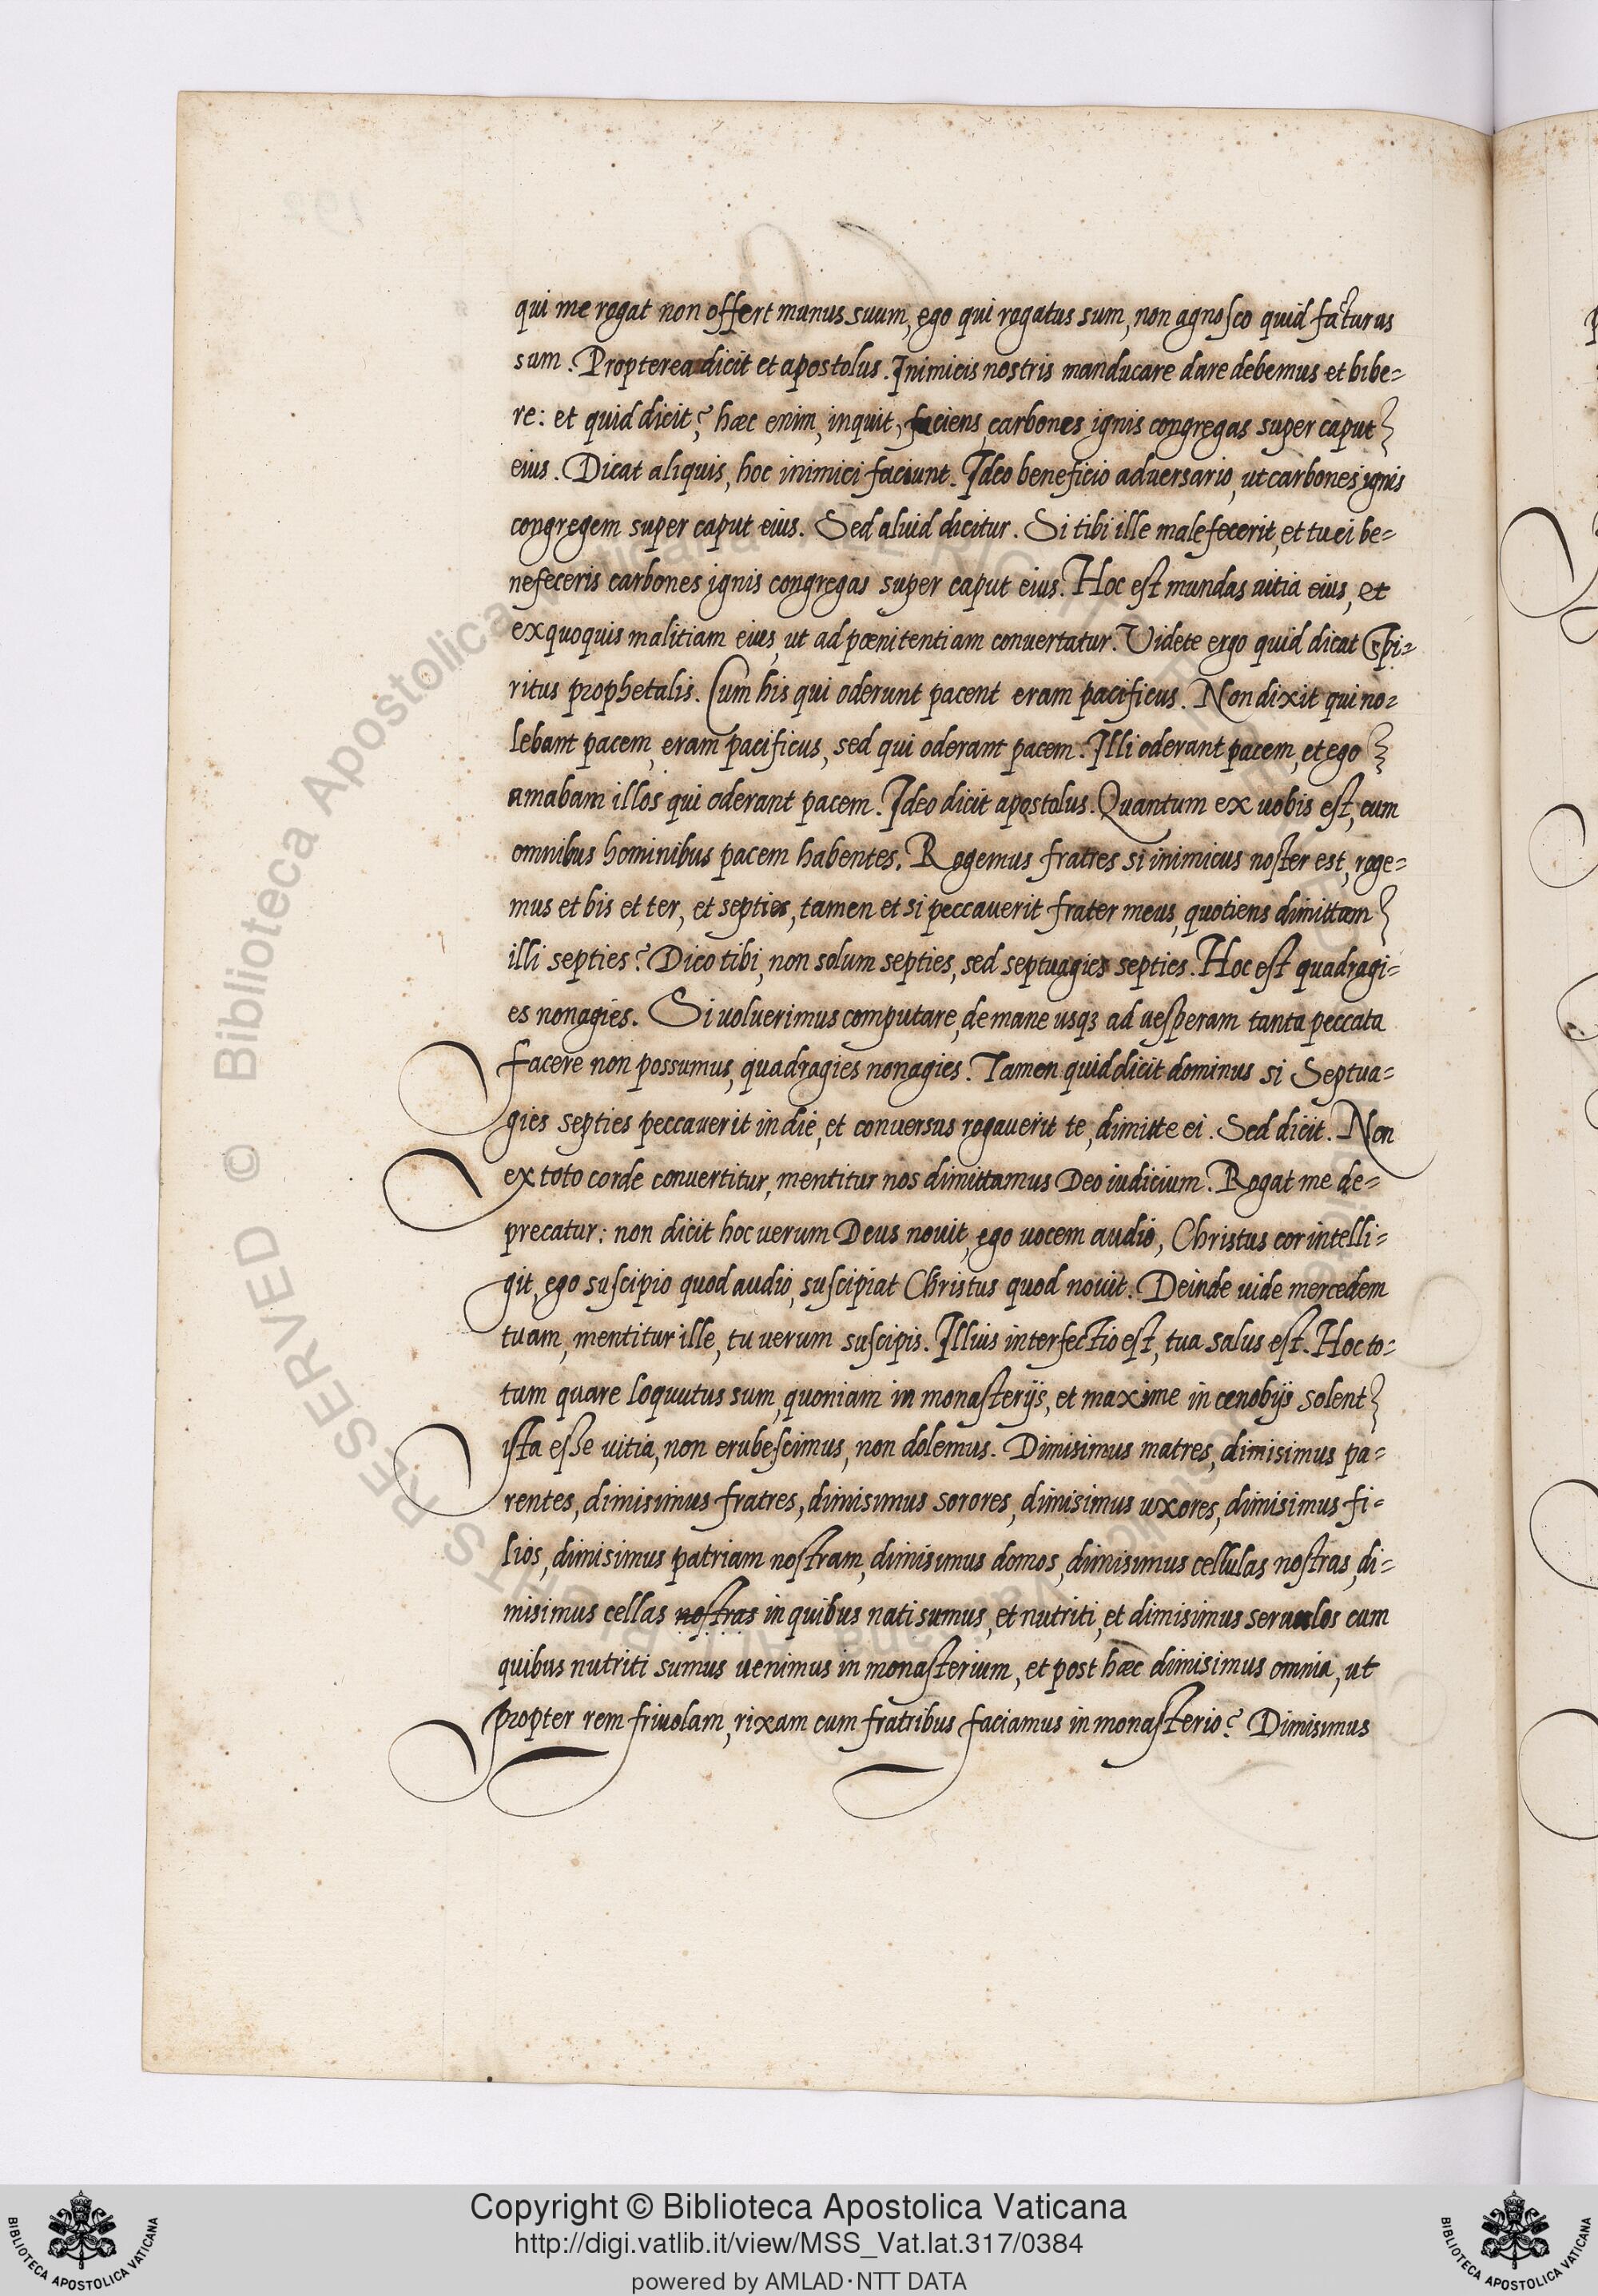 qui me rogat non offert munus suum, ego qui rogatus sum, non agnosco quid facturus
sum. Propterea dicit et apostolus. Inimicis nostris manducare dare debemus et bibe=
re: et quid dicit? hæc enim, inquit, faciens, carbones ignis congregas super caput
eius. Dicat aliquis, hoc inimici faciunt. Ideo beneficio aduersario, ut carbones ignis
congregem super caput eius. Sed aliud dicitur. Si tibi ille malefecerit, et tu ei be=
nefeceris carbones ignis congregas super caput eius. Hoc est mundas uitia eius, et
exquoquis malitiam eius, ut ad pœnitentiam conuertatur. Videte ergo quid dicat Spi=
ritus prophetalis. Cum his qui oderunt pacent eram pacificus. Non dixit qui no=
lebant pacem, eram pacificus, sed qui oderant pacem. Illi oderant pacem, et ego
amabam illos qui oderant pacem. Ideo dicit apostolus. Quantum ex uobis est, cum
omnibus hominibus pacem habentes. Rogemus fratres si inimicus noster est, roge=
mus et bis et ter, et septies, tamen et si peccauerit frater meus, quotiens dimittam
illi septies? Dico tibi, non solum septies, sed septuagies septies. Hoc est quadragi=
es nonagies. Si uoluerimus computare, de mane usqꝫ ad uesperam tanta peccata
facere non possumus, quadragies nonagies. Tamen quid dicit dominus si Septua=
gies septies peccauerit in die, et conuersus rogauerit te, dimitte ei. Sed dicit. Non
ex toto corde conuertitur, mentitur nos dimittamus Deo iudicium. Rogat me de=
precatur: non dicit hoc uerum Deus nouit, ego uocem audio, Christus cor intelli=
git, ego suscipio quod audio, suscipiat Christus quod nouit. Deinde uide mercedem
tuam, mentitur ille, tu uerum suscipis. Illius interfectio est, tua salus est. Hoc to=
tum quare loquutus sum, quoniam in monasterijs, et maxime in cenobijs solent
ista esse uitia, non erubescimus, non dolemus. Dimisimus matres, dimisimus pa=
rentes, dimisimus fratres, dimisimus sorores, dimisimus uxores, dimisimus fi=
lios, dimisimus patriam nostram, dimisimus domos, dimisimus cellulas nostras, di=
misimus cellas nostras in quibus nati sumus, et nutriti, et dimisimus seruulos cum
quibus nutriti sumus uenimus in monasterium, et post hæc dimisimus omnia, ut
propter rem friuolam, rixam cum fratribus faciamus in monasterio? Dimisimus
Copyright © Biblioteca Apostolica Vaticana
http://digi.vatlib.it/view/MSS_Vat.lat.317/0384
powered by AMLAD·NTT DATA
BIBLIOTECA APOSTOLICA VATICANA
BIBLIOTECA APOSTOLICA VATICANA